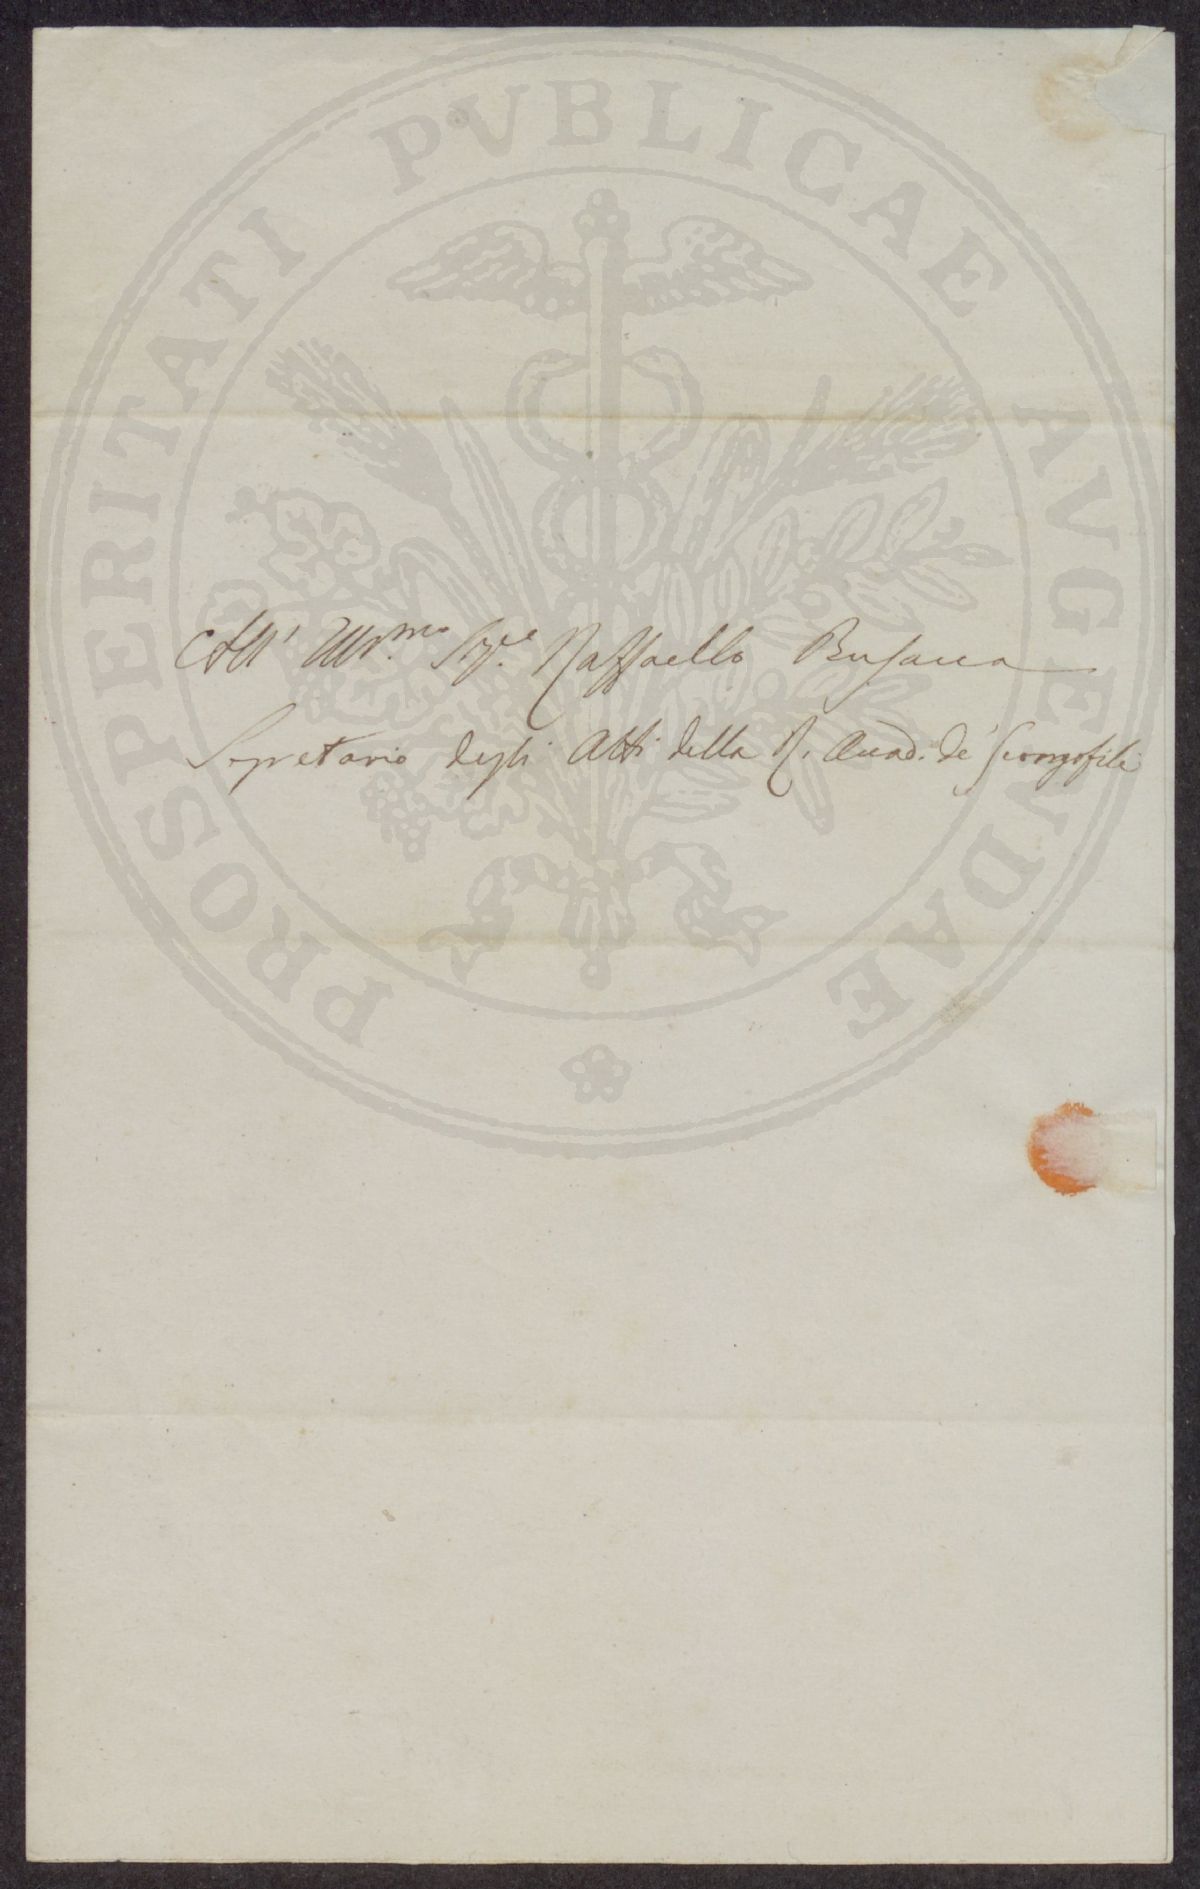 PROSPERITATI PVBLICAE AVGENDAE
All' Ill.mo Sig.re Raffaello Busacca
Segretario degli Atti della R. Accad. de' Georgofili